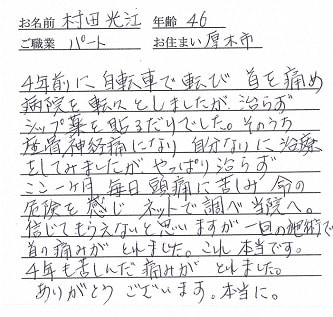 お名前 村田光江 年齢 46
ご職業 パート お住まい 厚木市
4年前に自転車で転び 首を痛め
病院を転々としましたが、治らず
シップ薬を貼るだけでした。そのうち
座骨神経痛になり 自分なりに治療
をしてみましたがやっぱり治らず
ここ一ヶ月 毎日頭痛に苦しみ 命の
危険を感じ ネットで調べ当院へ。
信じてもらえないと思いますが 一回の施術で
首の痛みが とれました。これ本当です。
4年も苦しんだ痛みが とれました。
ありがとう ございます。本当に。